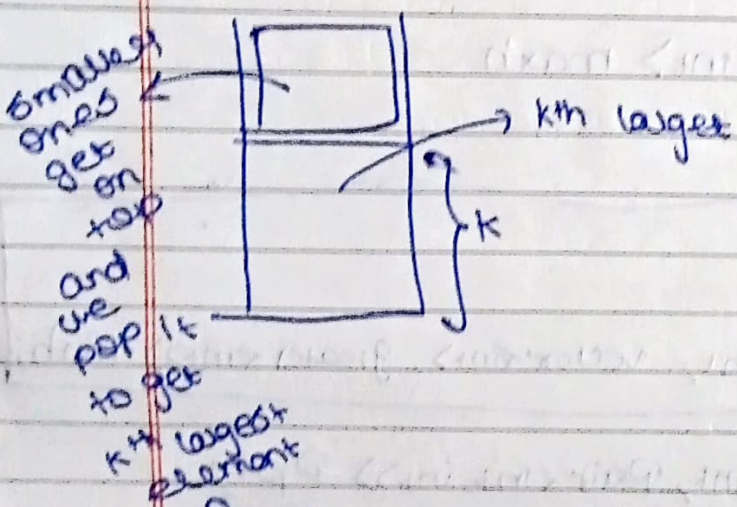 smallest
ones
get
on
top
and
we
pop it
to get
kth largest
element
kth largest
K